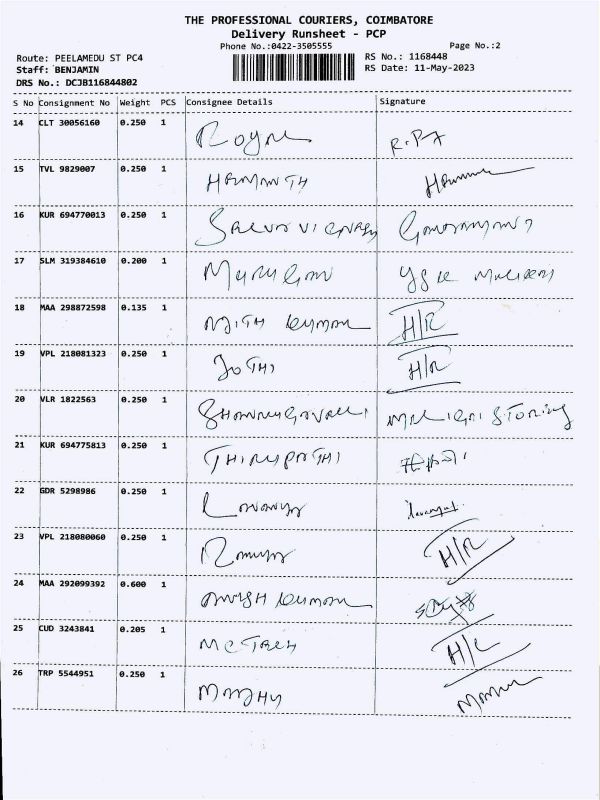 THE PROFESSIONAL COURIERS, COIMBATORE
Delivery Runsheet - PCP
Phone No.:0422-3505555 Page No.:2
Route: PEELAMEDU ST PC4 RS No.: 1168448
Staff: BENJAMIN RS Date: 11-May-2023
DRS No.: DCJB116844802
S No Consignment No Weight PCS Consignee Details Signature
14 CLT 30056160 0.250 1
15 TVL 9829007 0.250 1 HEMANTH
16 KUR 694770013 0.250 1
17 SLM 319384610 0.200 1 MURUGAN
18 MAA 298872598 0.135 1 H/R
19 VPL 218081323 0.250 1 JOTHI H/R
20 VLR 1822563 0.250 1
21 KUR 694775813 0.250 1 THIRUPATHI
22 GDR 5298986 0.250 1 Lavanya
23 VPL 218080060 0.250 1 Ramya H/R
24 MAA 292099392 0.600 1
25 CUD 3243841 0.205 1 H/R
26 TRP 5544951 0.250 1 MADHU